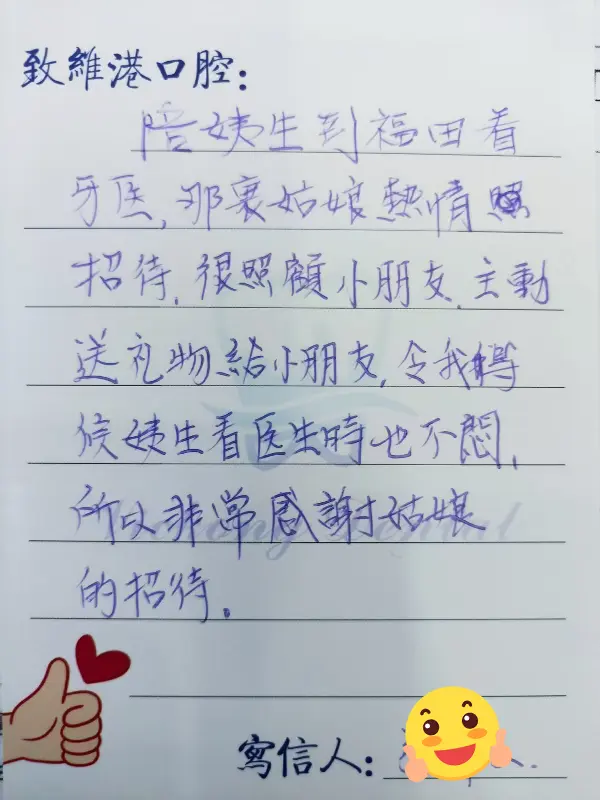 致維港口腔：
陪姨生到福田看
牙医，那裏姑娘熱情
招待，很照顧小朋友，主動
送礼物給小朋友，令我
候姨生看医生時也不悶，
所以非常感謝姑娘
的招待。
寫信人：